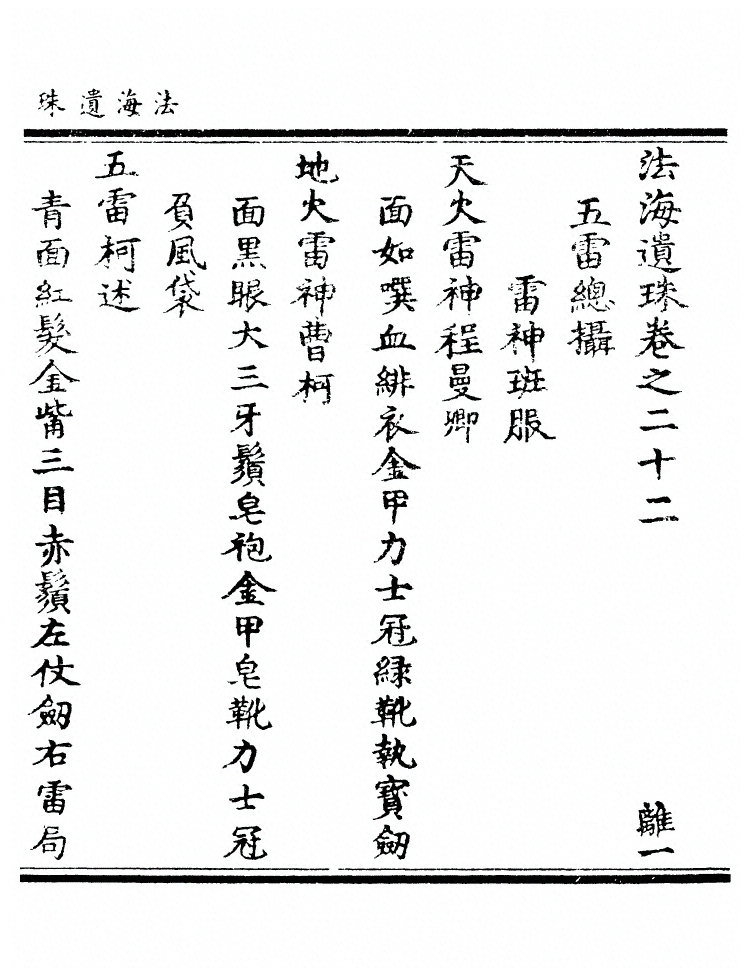 法海遺珠
法海遺珠卷之二十二　離一
五雷總攝
雷神班服
天火雷神程曼卿
面如噀血緋衣金甲力士冠緑靴執寶劒
地火雷神曹柯
面黑眼大三牙鬚皂袍金甲皂靴力士冠
負風袋
五雷柯述
青面紅髮金嘴三目赤鬚左仗劒右雷局